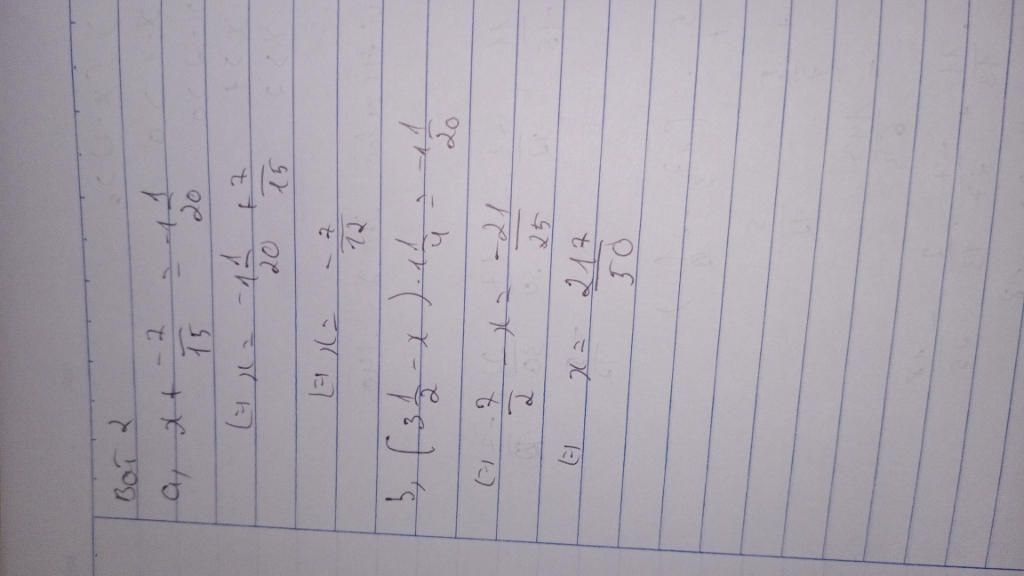 Bài 2
a, x + -7/15 = -1 1/20
<=> x = -1 1/20 + 7/15
<=> x = -7/12
b, (3 1/2 - x) . 1 1/4 = -1 1/20
<=> 7/2 - x = -21/25
<=> x = 217/50